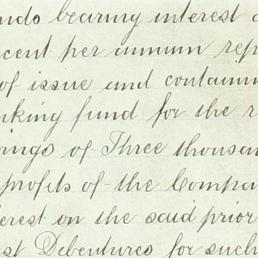 nds bearing interest a
cent per annum rep
of issue and contain
nking fund for the r
ings of Three thousan
profits of the Compa
erest on the said prior
st Debentures for such